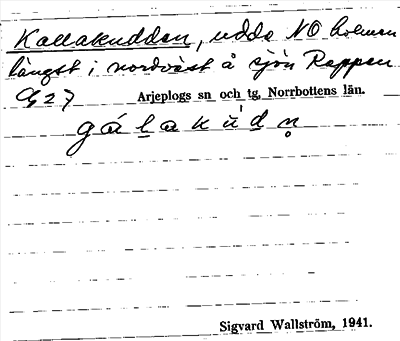 Kallakudden, udde NO holmen
längst i nordväst å sjön Rappen
G27 Arjeplogs sn och tg, Norrbottens län.
gálakùdn̥
Sigvard Wallström, 1941.